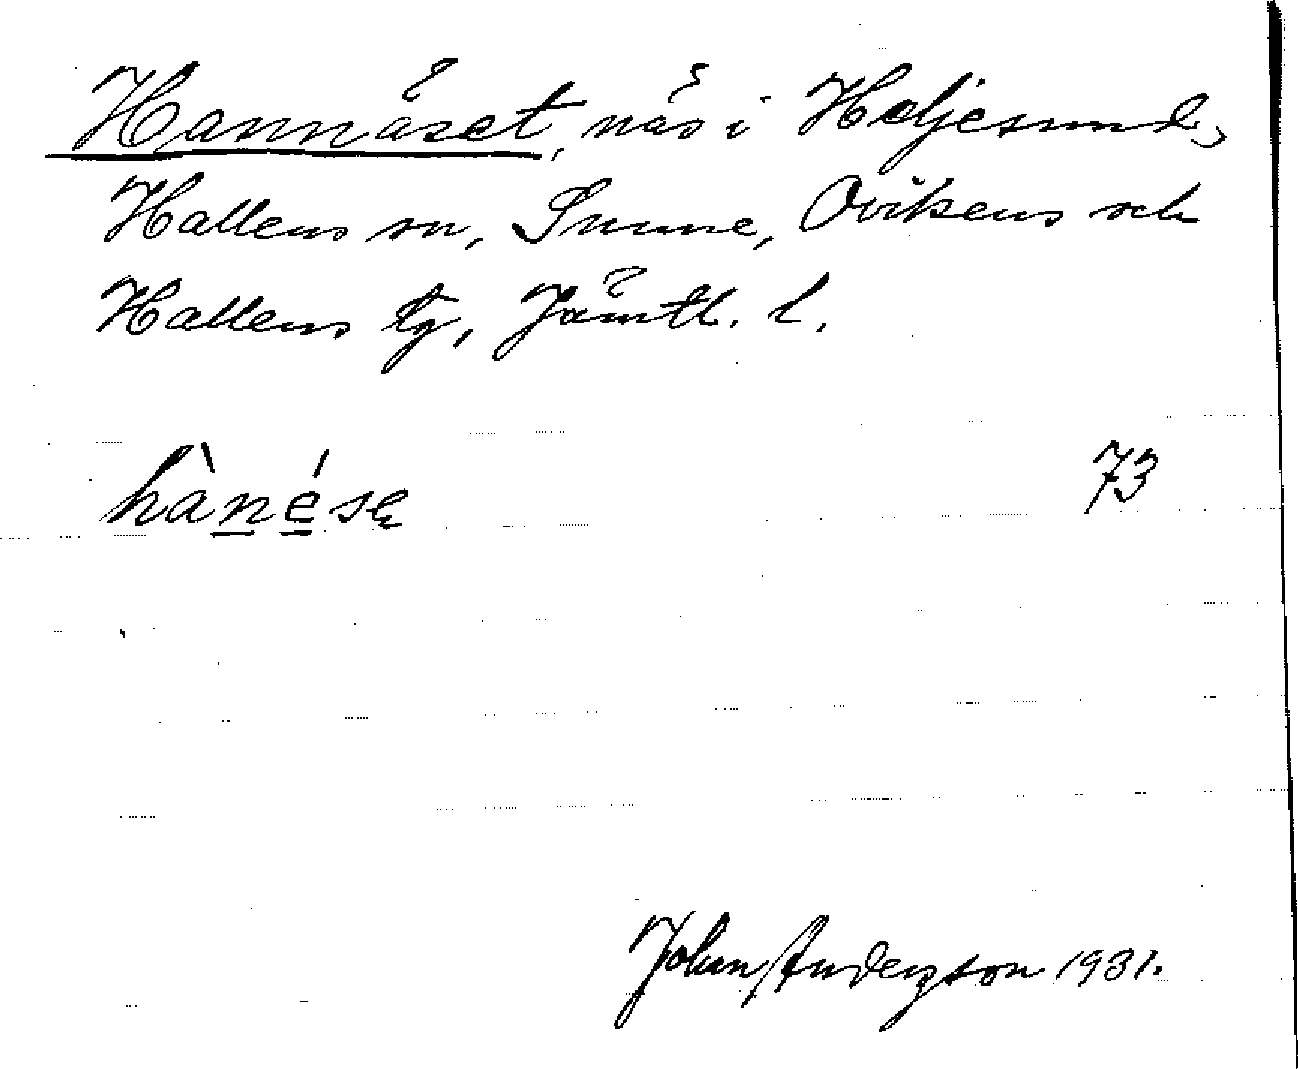 Hannäset, näs i Heljesund,
Hallens sn, Sunne, Ovikens och
Hallens tg, Jämtl. l.
hànése 73
Johan Anderzson 1931.